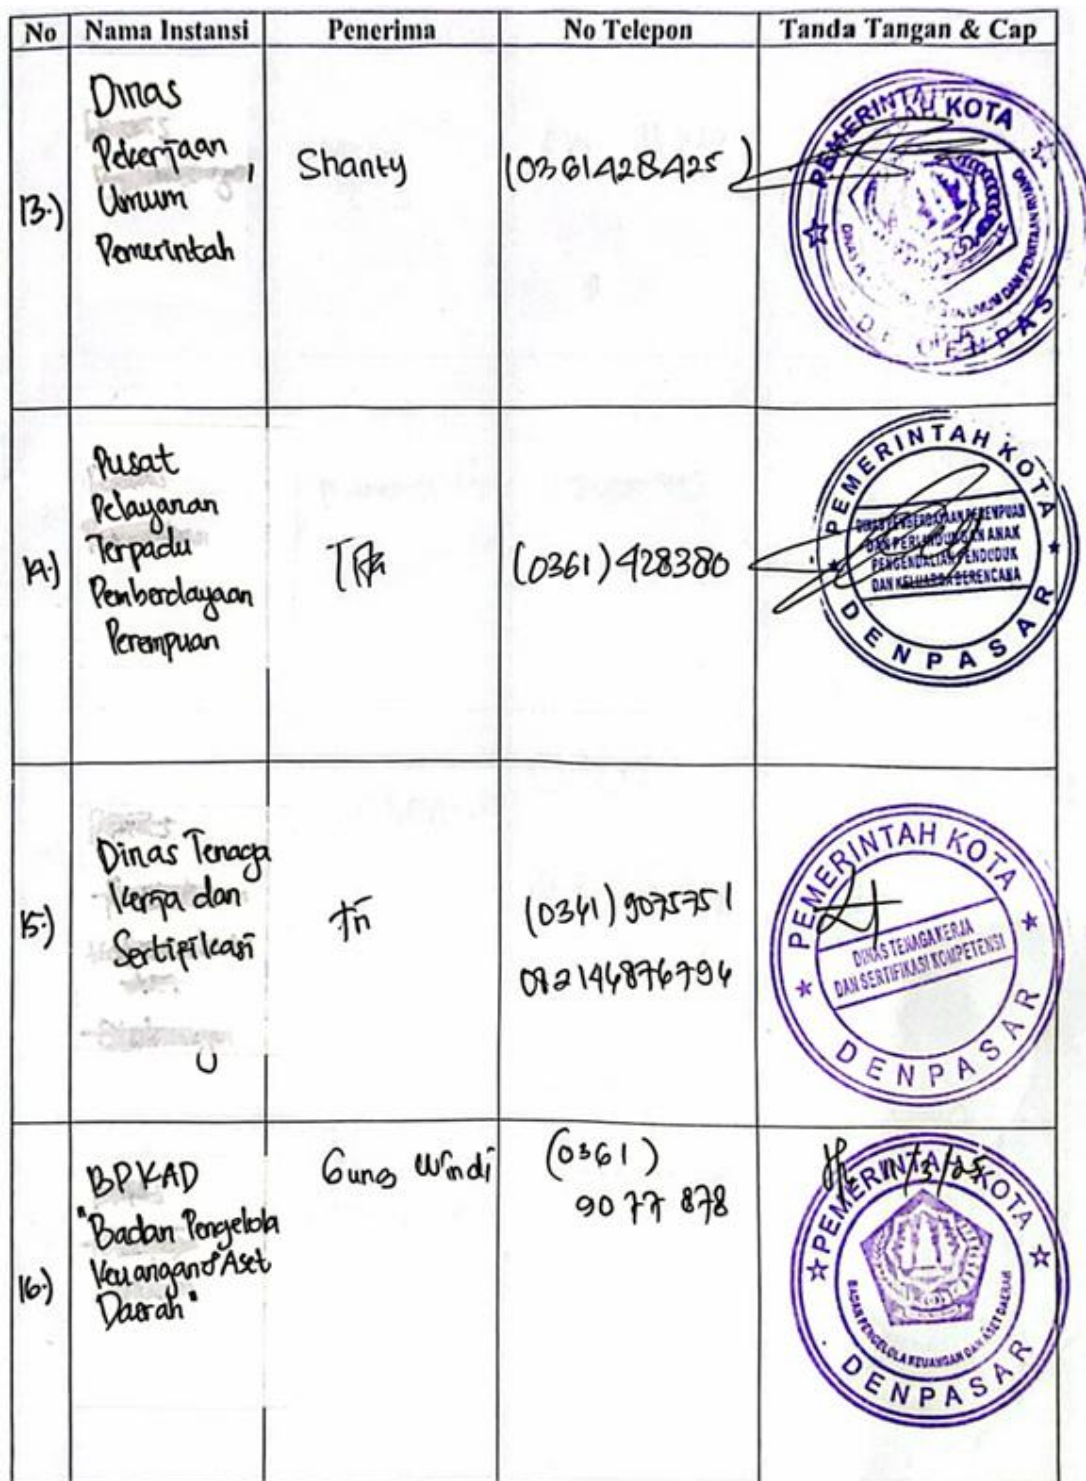 No Nama Instansi Penerima No Telepon Tanda Tangan & Cap
13.)
Dinas
Pekerjaan
Umum
Pemerintah
Shanty
(0361428425)
PEMERINTAH KOTA
UMUM DAN PENATAAN RUANG
DENPASAR
14.)
Pusat
Pelayanan
Terpadu
Pemberdayaan
Perempuan
(0361) 428380
PEMERINTAH KOTA
DINAS PEMBERDAYAAN PEREMPUAN
DAN PERLINDUNGAN ANAK
PENGENDALIAN PENDUDUK
DAN KELUARGA BERENCANA
DENPASAR
15.)
Dinas Tenaga
Kerja dan
Sertifikasi
(0361) 9075751
082146876794
PEMERINTAH KOTA
DINAS TENAGA KERJA
DAN SERTIFIKASI KOMPETENSI
DENPASAR
16.)
BPKAD
"Badan Pengelola
Keuangan & Aset
Daerah"
Gung Windi
(0361)
9077 878
11/3/25
PEMERINTAH KOTA
BADAN PENGELOLA KEUANGAN DAN ASET DAERAH
DENPASAR